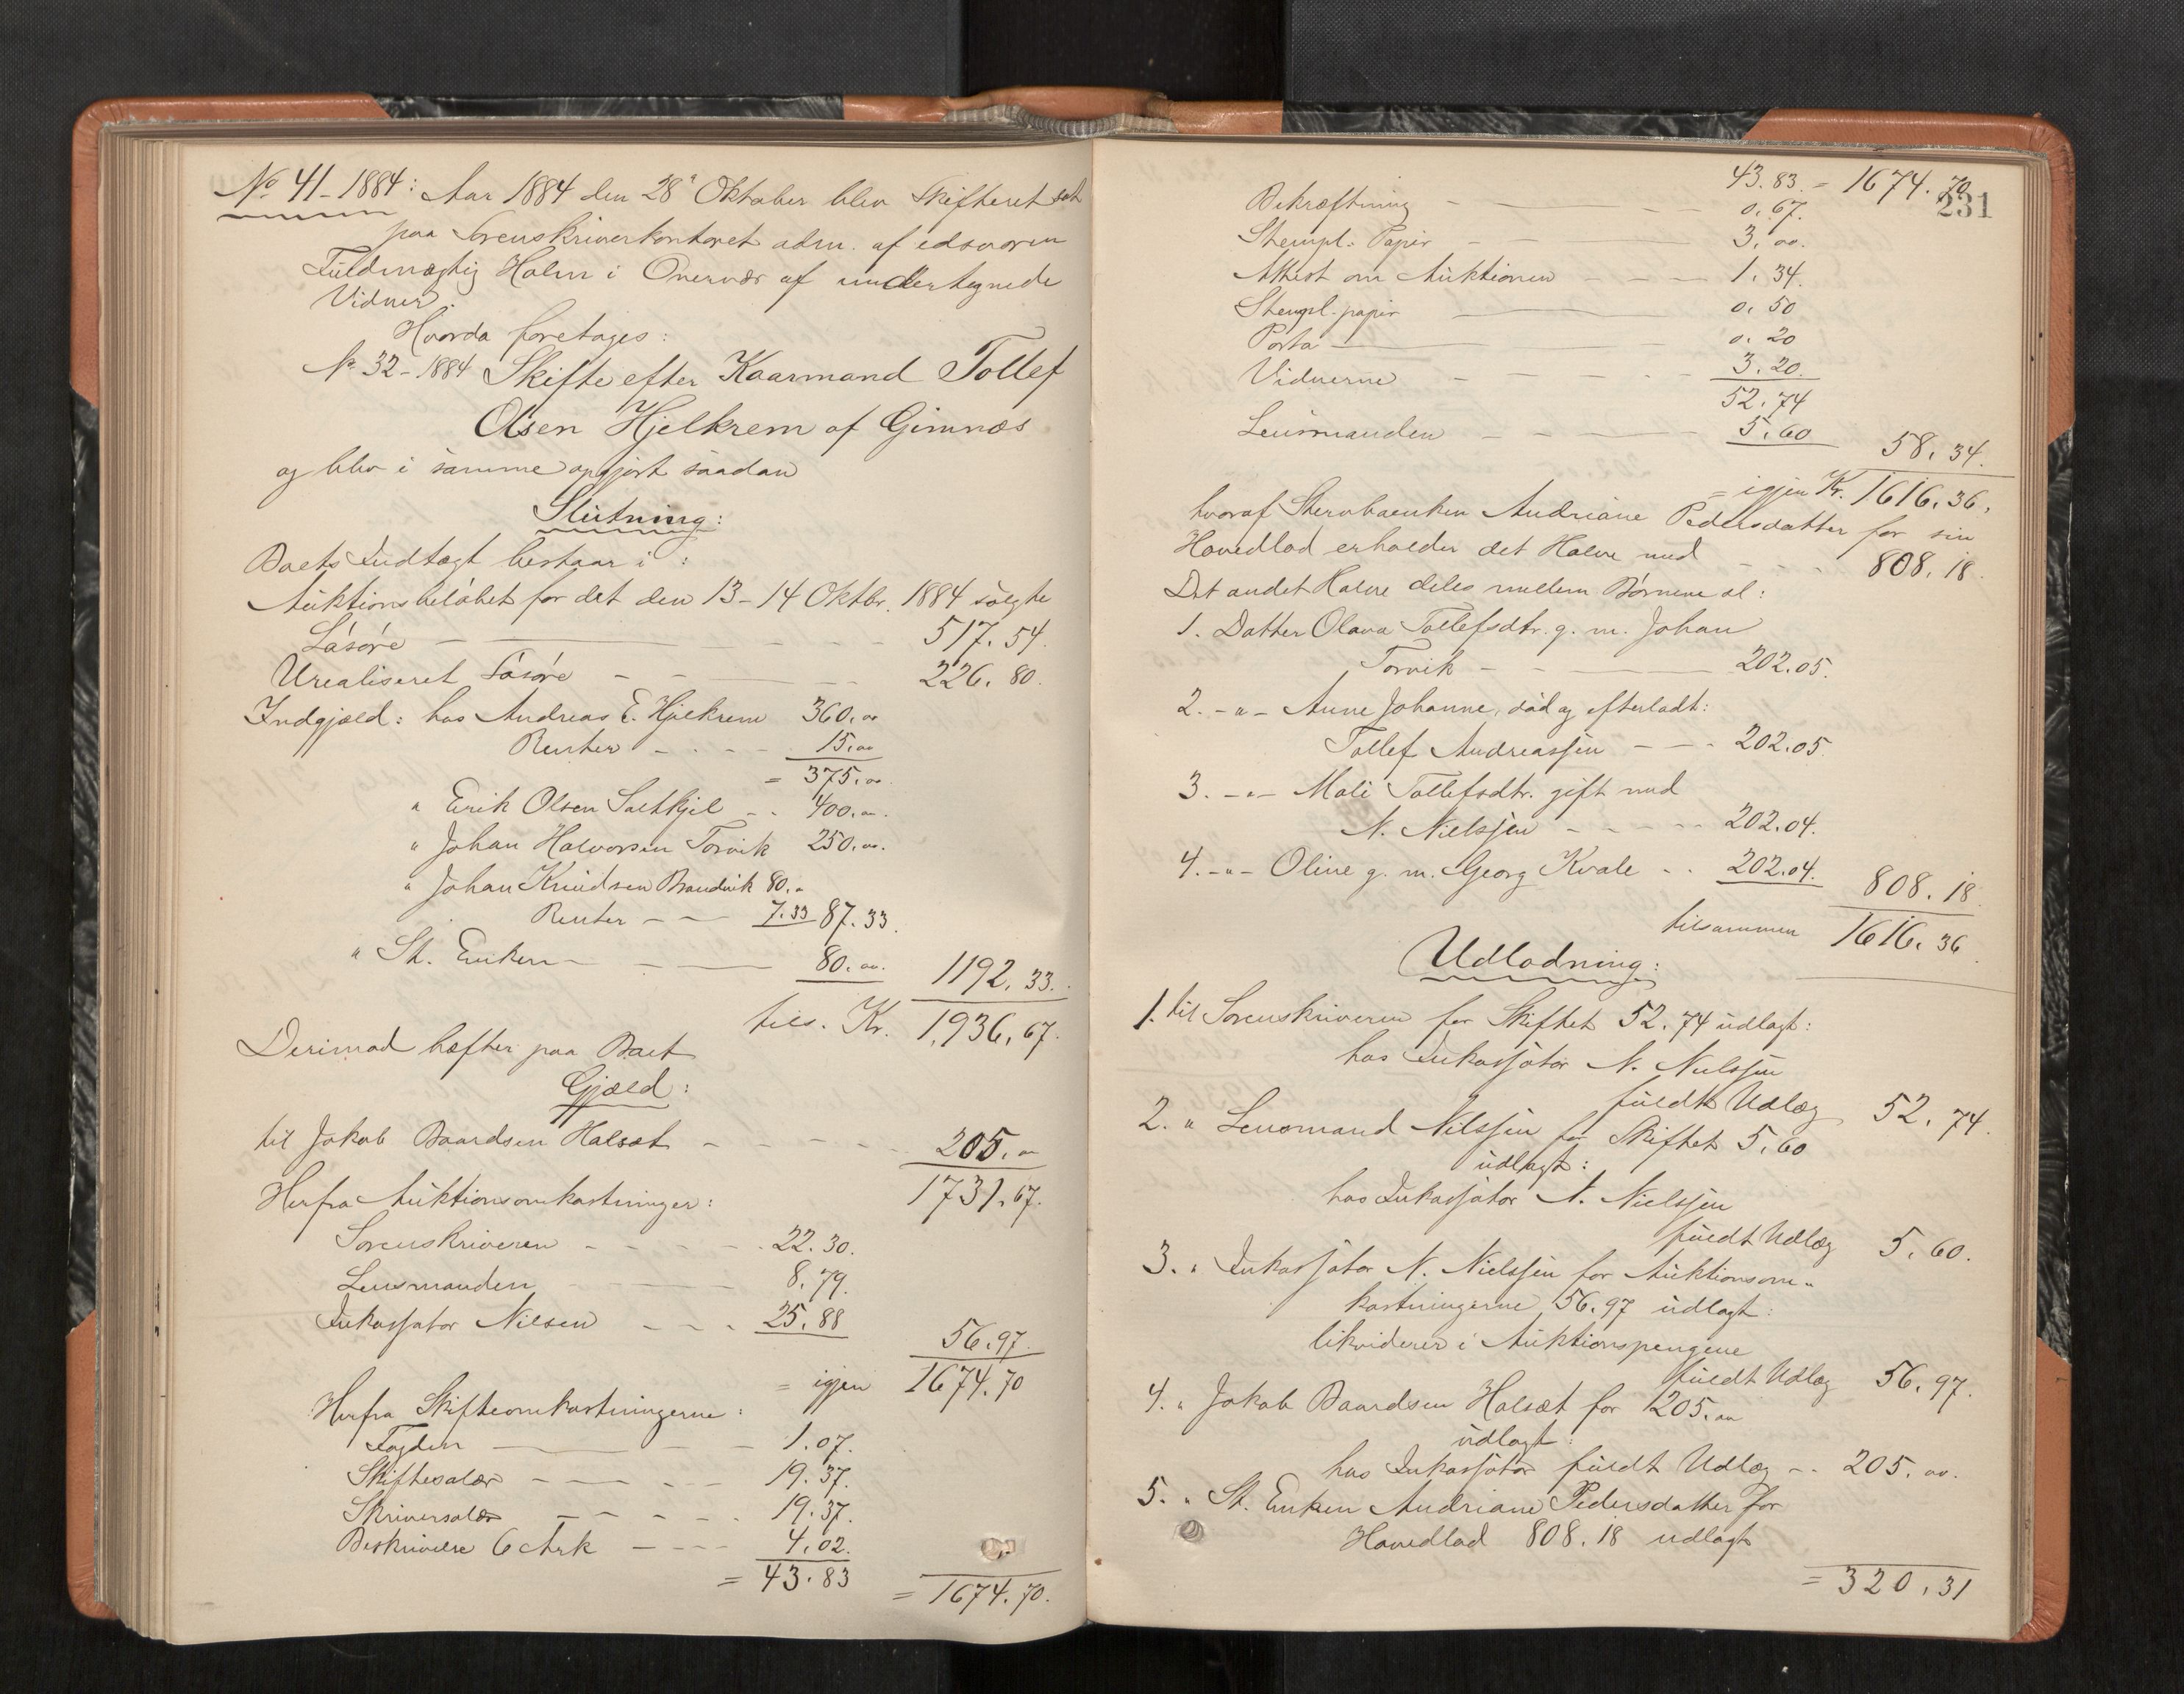 No 41-1884: Aar 1884 den 28' Oktober blev Skifteret sat
paa Sorenskriverkontoret adm. af edsvoren
Fuldmægtig Holm i Overvær af undertegnede
Vidner.
Hvorda foretages:
No 32-1884 Skifte efter Kaarmand Tollef
Olsen Hjelkrem af Gimnæs
og blev i samme opgjort saadan
Slutning:
Boets Indtægt bestaar i:
Auktionsbeløbet for det den 13-14 Oktbr. 1884 solgte
Løsøre - - - 517.54.
Urealiseret Løsøre - - - 226.80.
Indgjæld: hos Andreas E. Hjelkrem 360.00
Renter - - - 15.00
= 375.00.
" Erik Olsen Saltkjel - - 400.00.
" Johan Halvorsen Torvik 250.00.
" Johan Knudsen Brandvik 80.-
Renter - - 7.33 87.33.
" St. Enken - - 80.00. 1192.33.
tils. Kr. 1,936.67.
Derimod hæfter paa Boet
Gjæld:
til Jakob Baardsen Halsæt - - - - 205.00
1731.67.
Herfra Auktionsomkostninger:
Sorenskriveren - - - - 22.30.
Lensmanden - - 8.79.
Inkassator Nilsen - - - 25.88
56.97.
= igjen 1674.70
Herfra Skifteomkostningerne:
Fogden - - - 1.07.
Skiftesalær - - - 19.37.
Skriversalær - - - - 19.37.
Beskrivelse 6 Ark - - - 4.02.
= 43.83 = 1674.70.
43.83. = 1674.70
231
Bekræftning - - - 0.67.
Stempl. Papir - - 3.00.
Attest om Auktionen - - - 1.34.
Stempl. papir - - 0.50
Porto - 0.20
Vidnerne - - - - 3.20.
52.74
Lensmanden - - - 5.60 58.34.
= igjen Kr. 1616.36.
hvoraf Stervboenken Andriane Pedersdatter for sin
Hovedlod erholder det Halve med - - - 808.18.
Det andet Halve deles mellem Børnene al:
1. Datter Olava Tollefsdtr. g. m. Johan
Torvik - - - 202.05.
2. -"- Anne Johanne, død og efterladt:
Tollef Andreassen - - - 202.05.
3. -"- Mali Tollefsdtr. gift med
N. Nielssen - - - - 202.04.
4. -"- Oline g. m. Georg Kvale - - 202.04. 808.18.
tilsammen 1616.36.
Udlodning:
1. til Sorenskriveren for Skiftet 52.74 udlagt:
hos Inkassator N. Nielssen
fuldt Udlæg 52.74.
2. " Lensmand Nilssen for Skiftet 5.60
udlagt:
hos Inkassator N. Nielssen
fuldt Udlæg 5.60.
3. " Inkassator N. Nielssen for Auktionsom-
kostningerne 56.97 udlagt:
likviderer i Auktionspengene
fuldt Udlæg 56.97.
4. " Jakob Baardsen Halsæt for 205.00
udlagt:
hos Inkassator fuldt Udlæg - - 205.00.
5. " St. Enken Andriane Pedersdatter for
Hovedlod 808.18 udlagt
= 320.31